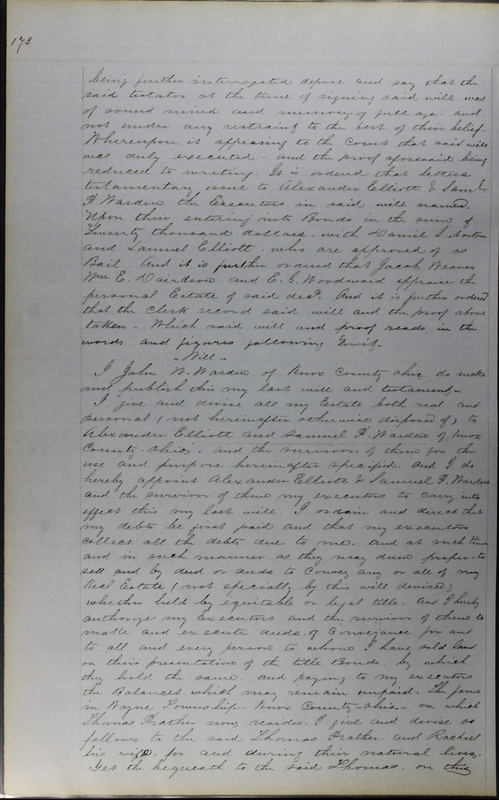 172
being further interrogated depose and say that the
said testator at the time of signing said will was
of sound mind and memory, of full age and
not under any restraint to the best of their belief.
Whereupon it appearing to the Court that said will
was duly executed and the proof aforesaid being
reduced to writing. It is ordered that letters
testamentary issue to Alexander Elliott & Saml
F. Warden the Executors in said will named.
Upon their entering into Bonds in the sum of
Twenty thousand dollars with Daniel S. Norton
and Samuel Elliott who are approved of as
Bail. And it is further ordered that Jacob Weaver
Wm E. Davidson and E. G. Woodward appraise the
personal Estate of said decd. And it is further ordered
that the Clerk record said will and the proof above
taken. Which said will and proof reads in the
words and figures following Towit.
"Will"
I John W. Warden of Knox County Ohio do make
and publish this my last will and testament.
I give and devise all my Estate both real and
personal (not hereinafter otherwise disposed of) to
Alexander Elliott and Samuel F. Warden of Knox
County, Ohio, and the survivor of them for the
use and purpose hereinafter specified. And I do
hereby appoint Alexander Elliott & Samuel F. Warden
and the survivor of them my executors to carry into
effect this my last will. I ordain and direct that
my debts be first paid and that my executors
collect all the debts due to me. And at such time
and in such manner as they may deem proper to
sell and by deed or deeds to Convey any or all of my
Real Estate (not specially by this will devised)
whether held by equitable or legal title. And I hereby
authorize my Executors and the survivor of them to
make and execute deeds of Conveyance for and
to all and every person to whom I have sold land
on their presentation of the title Bonds by which
they hold the same and paying to my executors
the Balances which may remain unpaid. The farm
in Wayne Township Knox County Ohio on which
Thomas Prather now resides, I give and devise as
follows to the said Thomas Prather and Rachael
his wife for and during their natural lives.
Yet the bequeath to the said Thomas on this